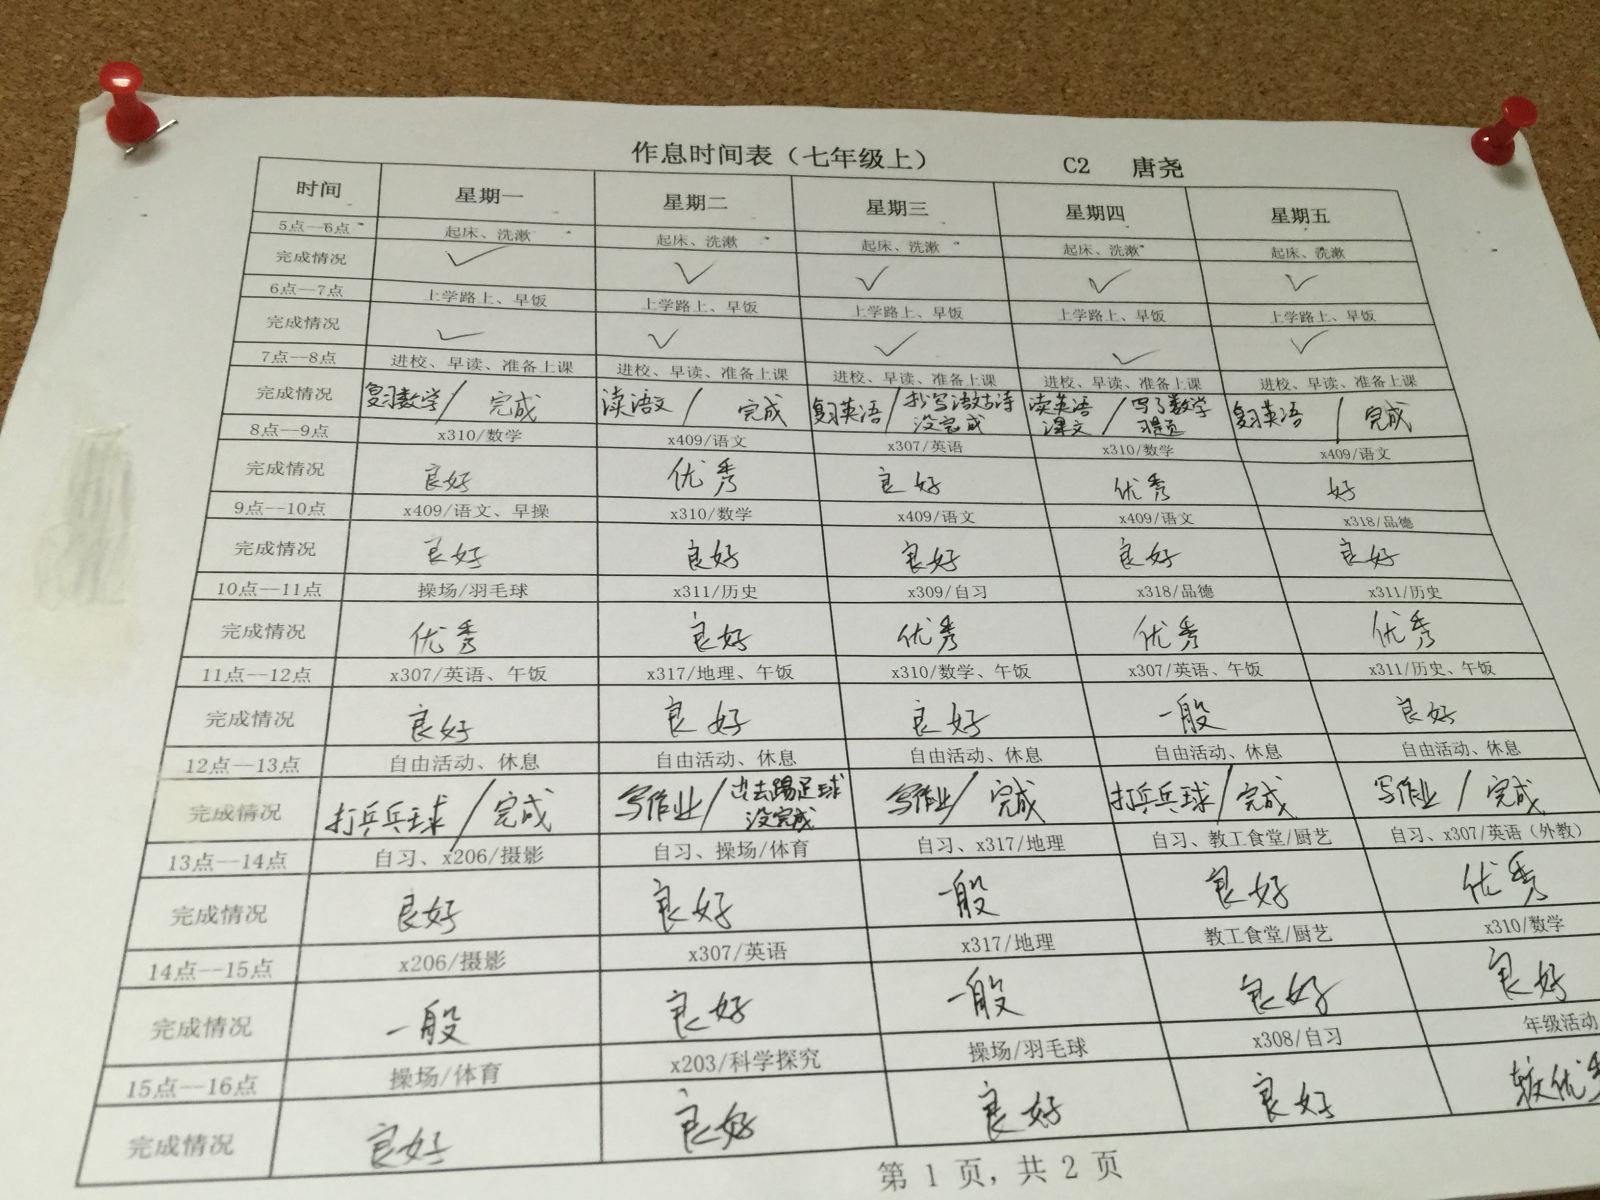 作息时间表（七年级上） C2 唐尧
时间 星期一 星期二 星期三 星期四 星期五
5点--6点 起床、洗漱 起床、洗漱 起床、洗漱 起床、洗漱 起床、洗漱
完成情况 ✓ ✓ ✓ ✓ ✓
6点--7点 上学路上、早饭 上学路上、早饭 上学路上、早饭 上学路上、早饭 上学路上、早饭
完成情况 ✓ ✓ ✓ ✓ ✓
7点--8点 进校、早读、准备上课 进校、早读、准备上课 进校、早读、准备上课 进校、早读、准备上课 进校、早读、准备上课
完成情况 复习数学/完成 读语文/完成 复习英语/抄写语文古诗没完成 读英语课文/写了数学习题 复习英语/完成
8点--9点 x310/数学 x409/语文 x307/英语 x310/数学 x409/语文
完成情况 良好 优秀 良好 优秀 好
9点--10点 x409/语文、早操 x310/数学 x409/语文 x409/语文 x318/品德
完成情况 良好 良好 良好 良好 良好
10点--11点 操场/羽毛球 x311/历史 x309/自习 x318/品德 x311/历史
完成情况 优秀 良好 优秀 优秀 优秀
11点--12点 x307/英语、午饭 x317/地理、午饭 x310/数学、午饭 x307/英语、午饭 x311/历史、午饭
完成情况 良好 良好 良好 一般 良好
12点--13点 自由活动、休息 自由活动、休息 自由活动、休息 自由活动、休息 自由活动、休息
完成情况 打乒乓球/完成 写作业/出去踢足球没完成 写作业/完成 打乒乓球/完成 写作业/完成
13点--14点 自习、x206/摄影 自习、操场/体育 自习、x317/地理 自习、教工食堂/厨艺 自习、x307/英语（外教）
完成情况 良好 良好 一般 良好 优秀
14点--15点 x206/摄影 x307/英语 x317/地理 教工食堂/厨艺 x310/数学
完成情况 一般 良好 一般 良好 良好
15点--16点 操场/体育 x203/科学探究 操场/羽毛球 x308/自习 年级活动
完成情况 良好 良好 良好 良好 较优秀
第 1 页，共 2 页